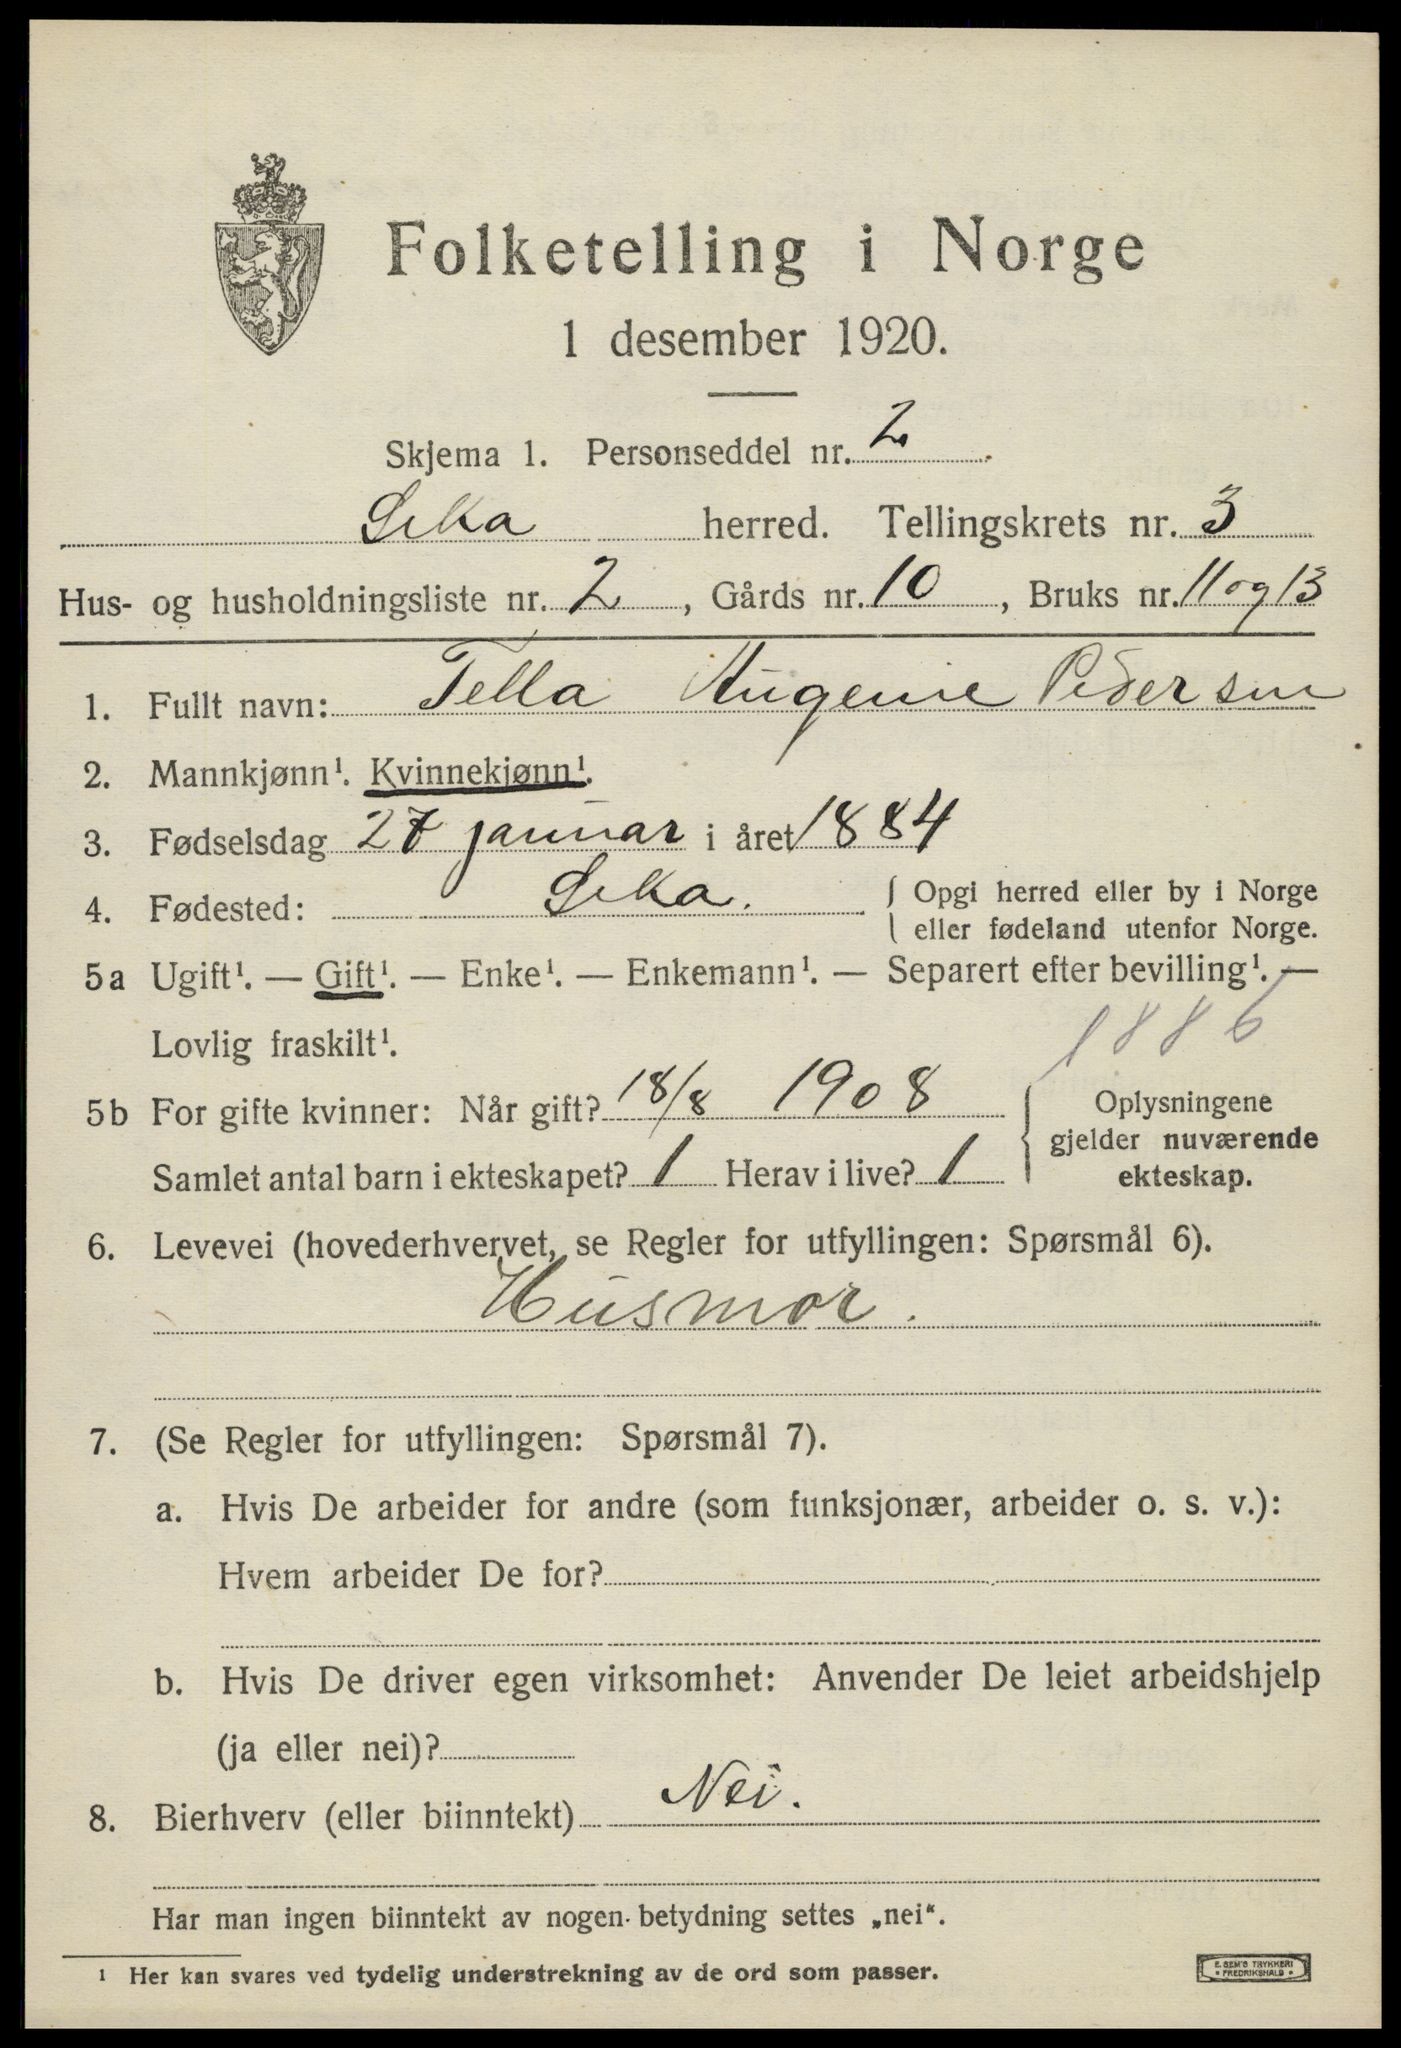 Folketelling i Norge
1 desember 1920.
Skjema 1. Personseddel nr. 2
Leka herred. Tellingskrets nr. 3
Hus- og husholdningsliste nr. 2, Gårds nr. 10, Bruks nr. 11 og 13
1. Fullt navn: Tella Augenie Pedersen
2. Mannkjønn¹. Kvinnekjønn¹.
3. Fødselsdag 27 januar i året 1884
4. Fødested: Leka. { Opgi herred eller by i Norge
eller fødeland utenfor Norge.
5a Ugift¹. — Gift¹. — Enke¹. — Enkemann¹. — Separert efter bevilling¹. —
Lovlig fraskilt¹.
1886
5b For gifte kvinner: Når gift? 18/8 1908 { Oplysningene
gjelder nuværende
Samlet antal barn i ekteskapet? 1 Herav i live? 1 ekteskap.
6. Levevei (hovederhvervet, se Regler for utfyllingen: Spørsmål 6).
Husmor.
7. (Se Regler for utfyllingen: Spørsmål 7).
a. Hvis De arbeider for andre (som funksjonær, arbeider o. s. v.):
Hvem arbeider De for?
b. Hvis De driver egen virksomhet: Anvender De leiet arbeidshjelp
(ja eller nei)?
8. Bierhverv (eller biinntekt) Nei.
Har man ingen biinntekt av nogen betydning settes „nei“.
¹ Her kan svares ved tydelig understrekning av de ord som passer.
E. SEM'S TRYKKERI
• FREDRIKSHALD •